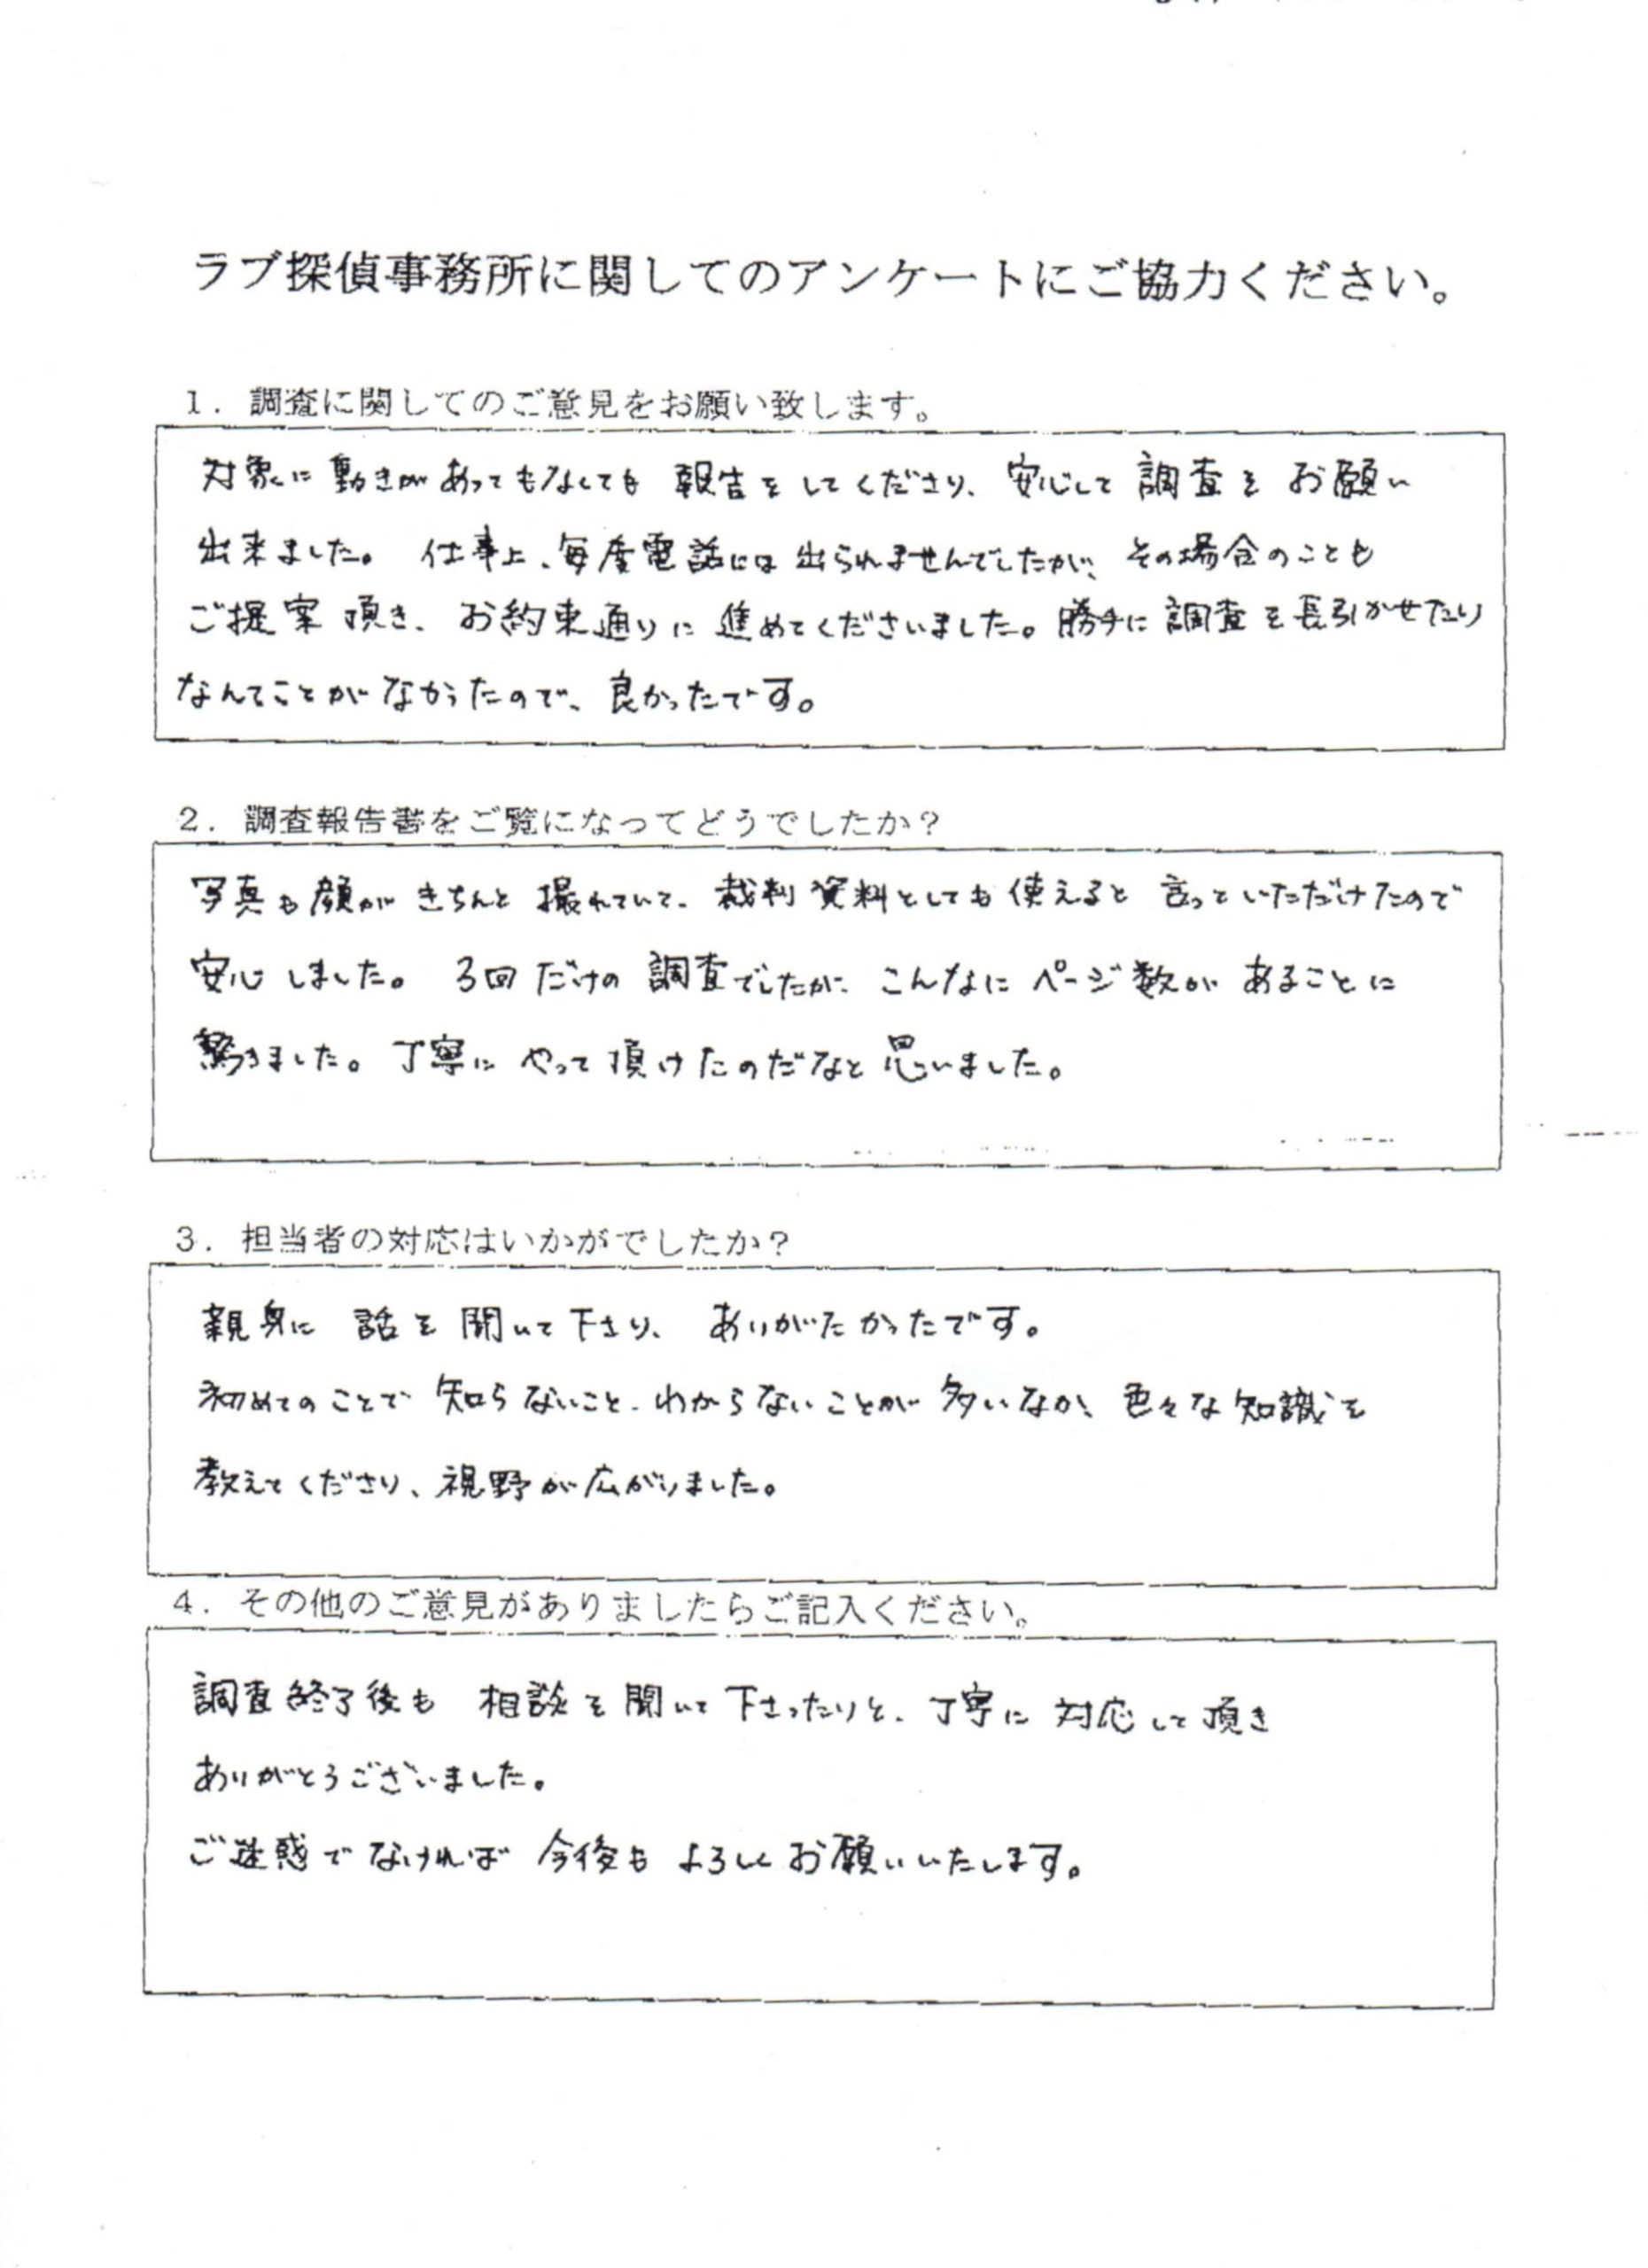 ラブ探偵事務所に関してのアンケートにご協力ください。
1．調査に関してのご意見をお願い致します。
対象に動きがあってもなくても報告をしてくださり、安心して調査をお願い
出来ました。仕事上、毎度電話には出られませんでしたが、その場合のことも
ご提案頂き、お約束通りに進めてくださいました。勝手に調査を長引かせたり
なんてことがなかったので、良かったです。
2．調査報告書をご覧になってどうでしたか？
写真も顔がきちんと撮れていて、裁判資料としても使えると言っていただけたので
安心しました。3回だけの調査でしたが、こんなにページ数があることに
驚きました。丁寧にやって頂けたのだなと思いました。
3．担当者の対応はいかがでしたか？
親身に話を聞いて下さり、ありがたかったです。
初めてのことで知らないこと、わからないことが多いなか、色々な知識を
教えてくださり、視野が広がりました。
4．その他のご意見がありましたらご記入ください。
調査終了後も相談を聞いて下さったりと、丁寧に対応して頂き
ありがとうございました。
ご迷惑でなければ今後もよろしくお願いいたします。